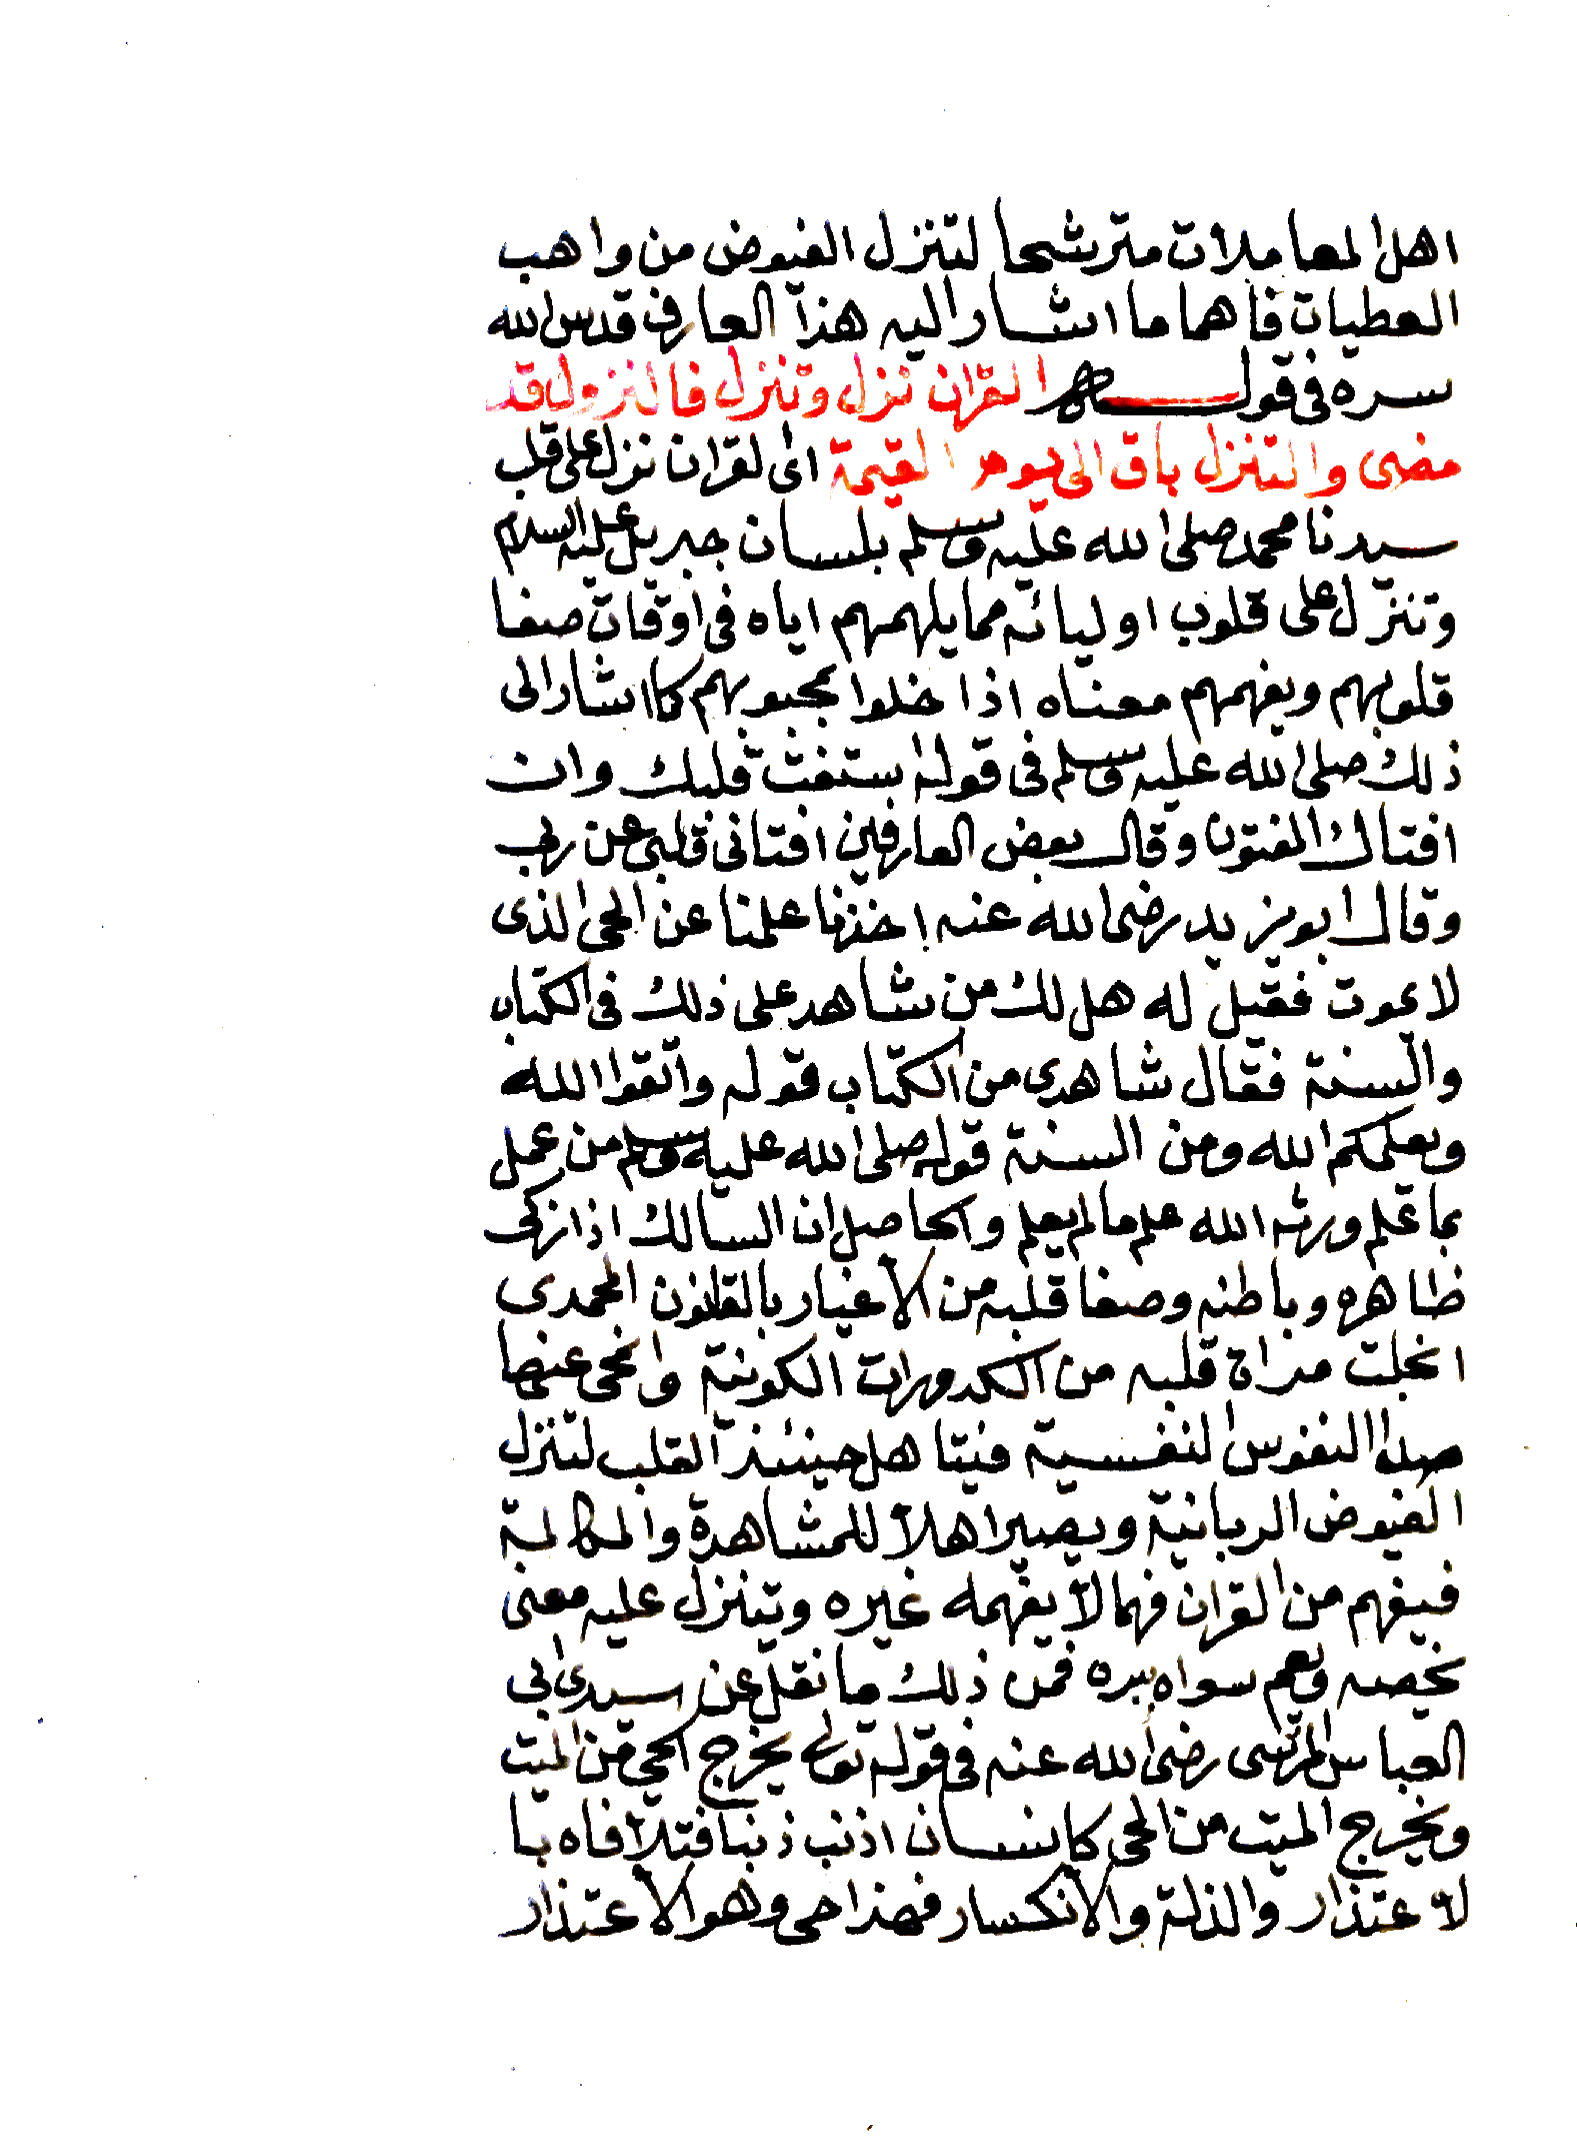 اهل المعاملات مترشحا لتنزل الفيوض من واهب
العطيات فافهم ما اشار اليه هذا العارف قدس الله
سره في قوله القران نزل وتنزل فالنزول قد
مضى والتنزل باق الى يوم القيمة اي القران نزل على قلب
سيدنا محمد صلى الله عليه وسلم بلسان جبريل عليه السلام
وتنزل على قلوب اوليائه مما يلهمهم اياه في اوقات صفا
قلوبهم ويفهمهم معناه اذا خلوا بمحبوبهم كما اشار الى
ذلك صلى الله عليه وسلم في قوله استفت قلبك وان
افتاك المفتون وقال بعض العارفين افتاني قلبي عن ربي
وقال ابو يزيد رضي الله عنه اخذنا علمنا عن الحي الذي
لا يموت فقيل له هل لك من شاهد على ذلك في الكتاب
والسنة فقال شاهدي من الكتاب قوله واتقوا الله
ويعلمكم الله ومن السنة قوله صلى الله عليه وسلم من عمل
بما علم ورثه الله علم ما لم يعلم والحاصل ان السالك اذا زكى
ظاهره وباطنه وصفا قلبه من الاغيار بالقانون المحمدي
انجلت مراة قلبه من الكدورات الكونية وانمحى عنها
صدا النفوس النفسية فيتاهل حينئذ القلب لتنزل
الفيوض الربانية ويصير اهلا للمشاهدة والمكالمة
فيفهم من القران فهما لا يفهمه غيره ويتنزل عليه معنى
يخصه ويعم سواه بسره فمن ذلك ما نقل عن سيدي ابي
العباس المرسي رضي الله عنه في قوله تعالى يخرج الحي من الميت
ويخرج الميت من الحي كانسان اذنب ذنبا فتلافاه با
لاعتذار والذلة والانكسار فهذا حي وهو الاعتذار